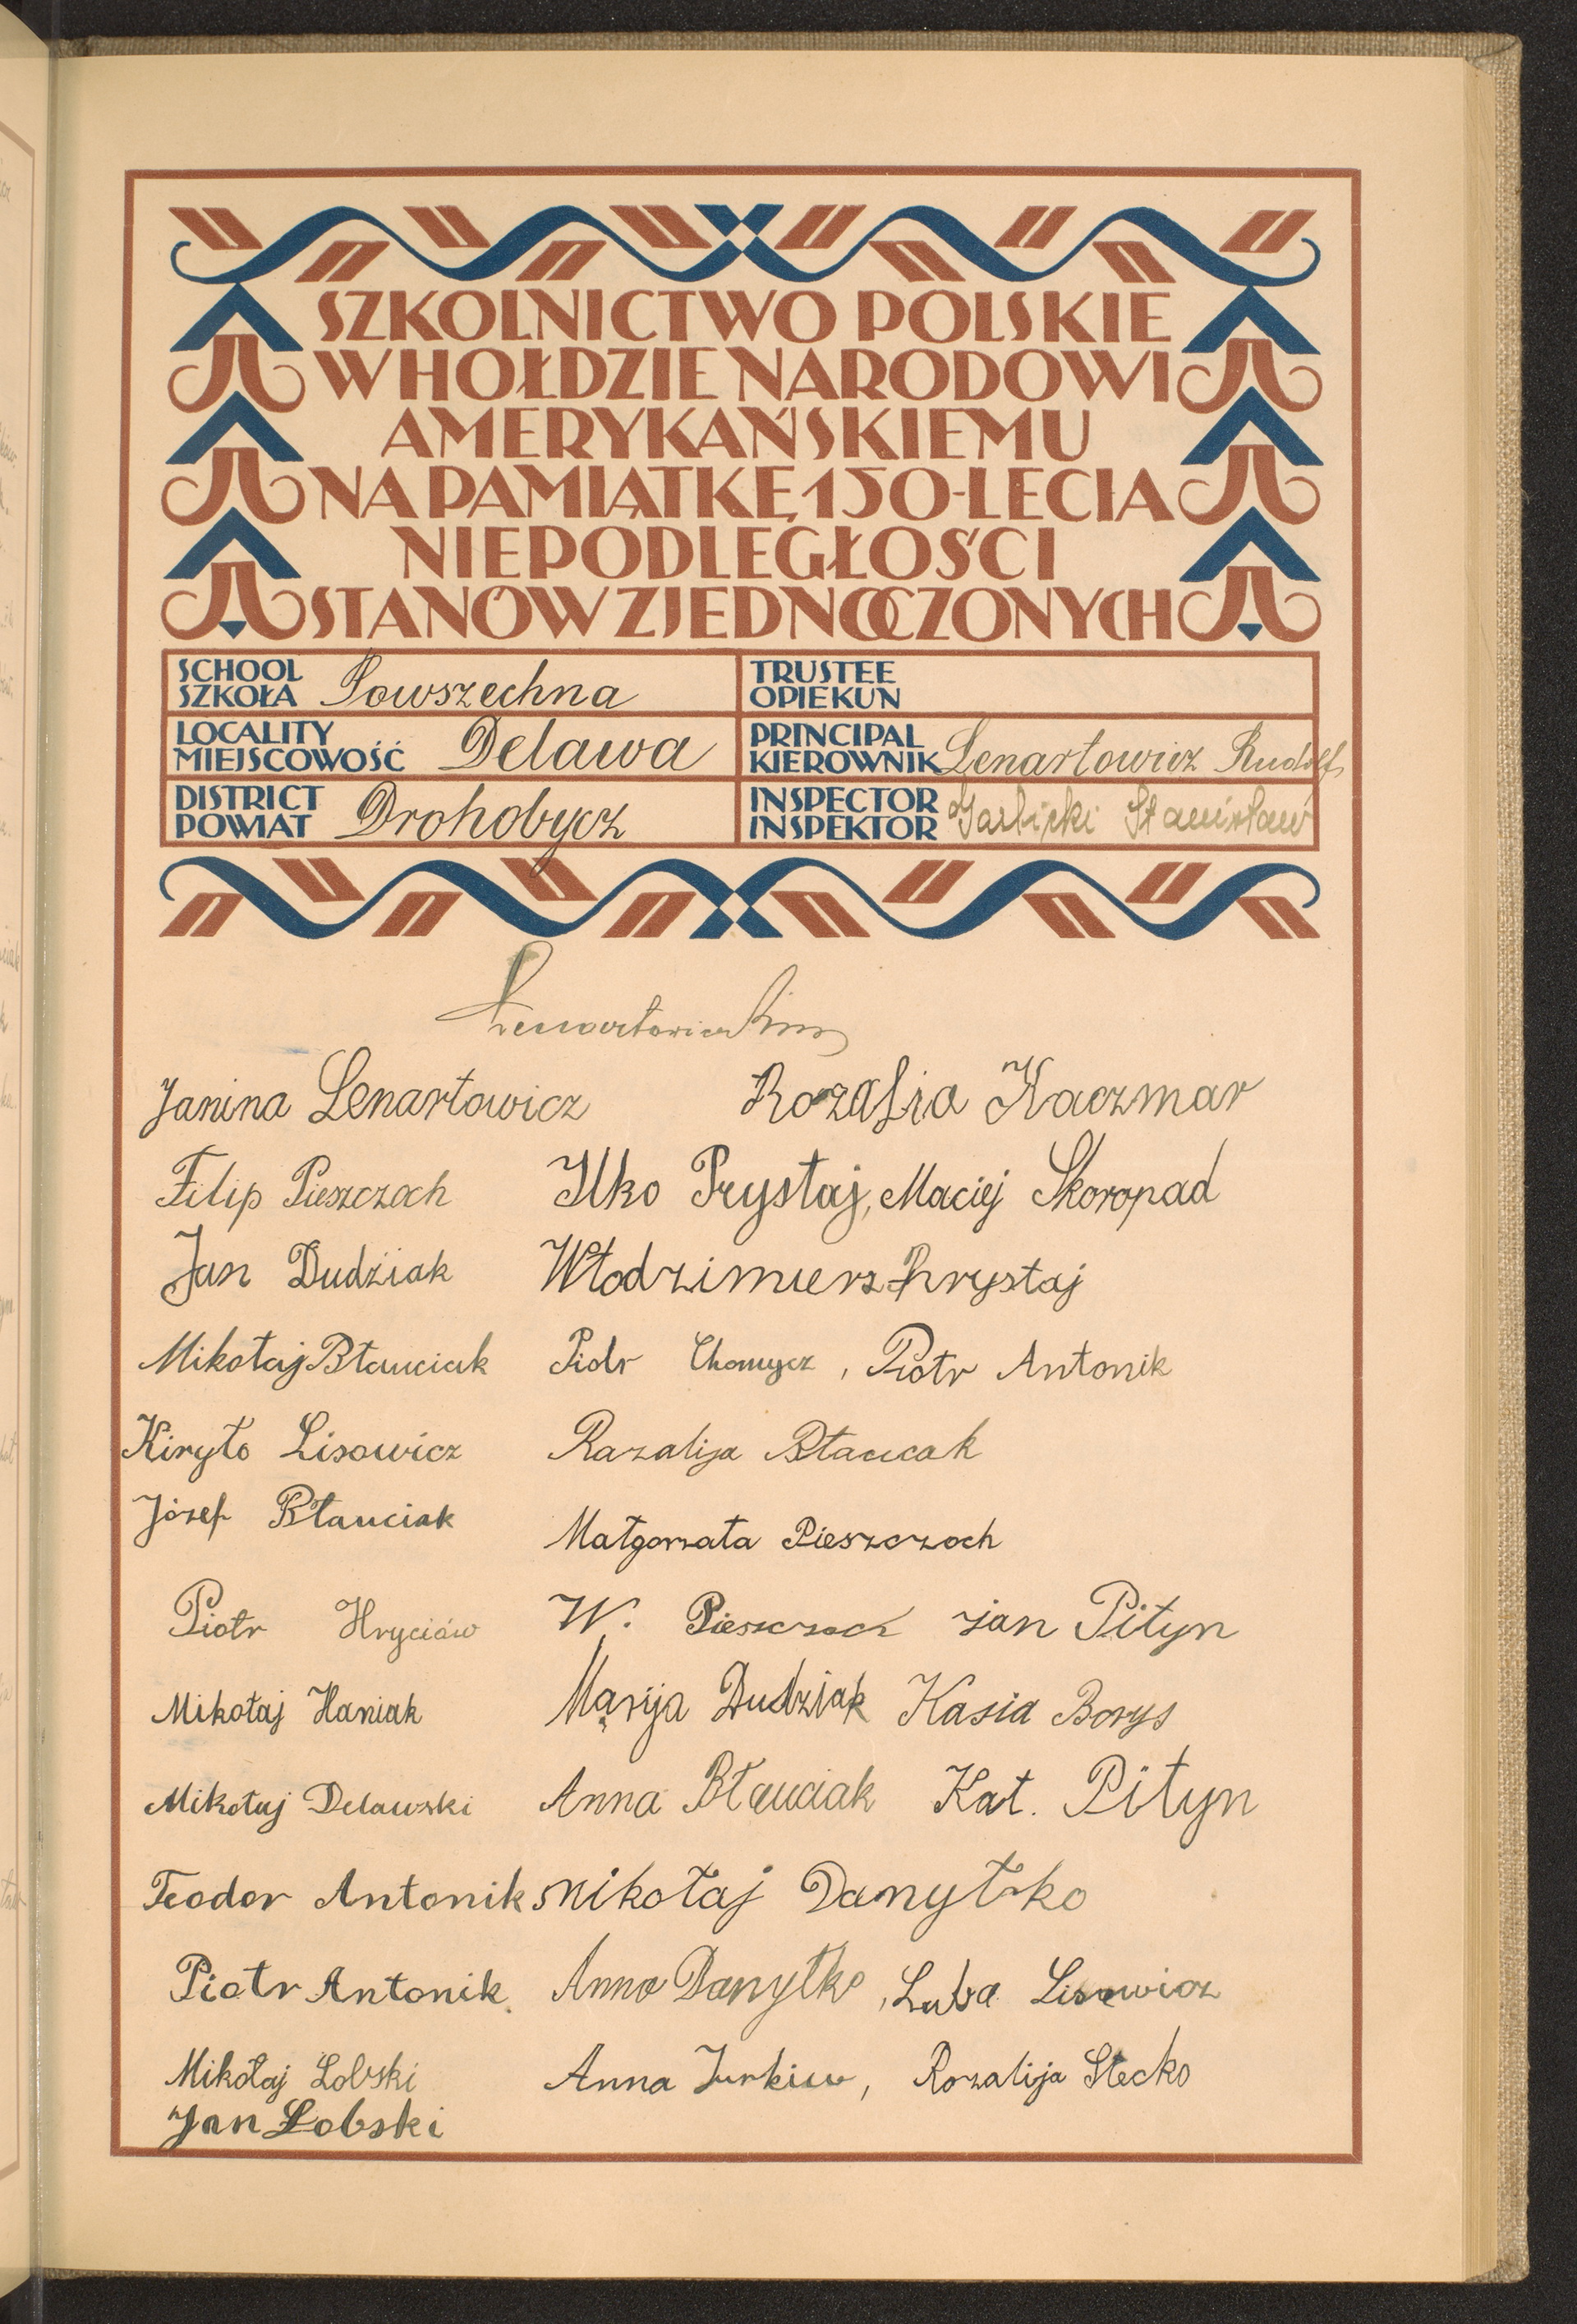 SZKOLNICTWO POLSKIE
W HOŁDZIE NARODOWI
AMERYKAŃSKIEMU
NA PAMIĄTKĘ 150-LECIA
NIEPODLEGŁOŚCI
STANÓW ZJEDNOCZONYCH
SCHOOL
SZKOŁA Powszechna
TRUSTEE
OPIEKUN
LOCALITY
MIEJSCOWOŚĆ Delawa
PRINCIPAL
KIEROWNIK Lenartowicz Rudolf
DISTRICT
POWIAT Drohobycz
INSPECTOR
INSPEKTOR Garbicki Stanisław
Lenartowicz
Janina Lenartowicz Rozalia Kaczmar
Filip Pieszczoch Ilko Prystaj, Maciej Skoropad
Jan Dudźiak Włodzimierz Prystaj
Mikołaj Błauciak Piotr Chomycz, Piotr Antonik
Kiryło Lisowicz Razalija Błaucak
Józef Błauciak Małgorzata Pieszczoch
Piotr Hryciów W. Pieszczoch Jan Pityn
Mikołaj Haniak Marija Dudziak Kasia Borys
Mikołaj Delawski Anna Błauciak Kat. Pityn
Teodor Antonik Mikołaj Danyłko
Piotr Antonik Anna Danyłko, Luba Lisowicz
Mikołaj Łobski Anna Jurkiw, Rozalija Stecko
Jan Łobski